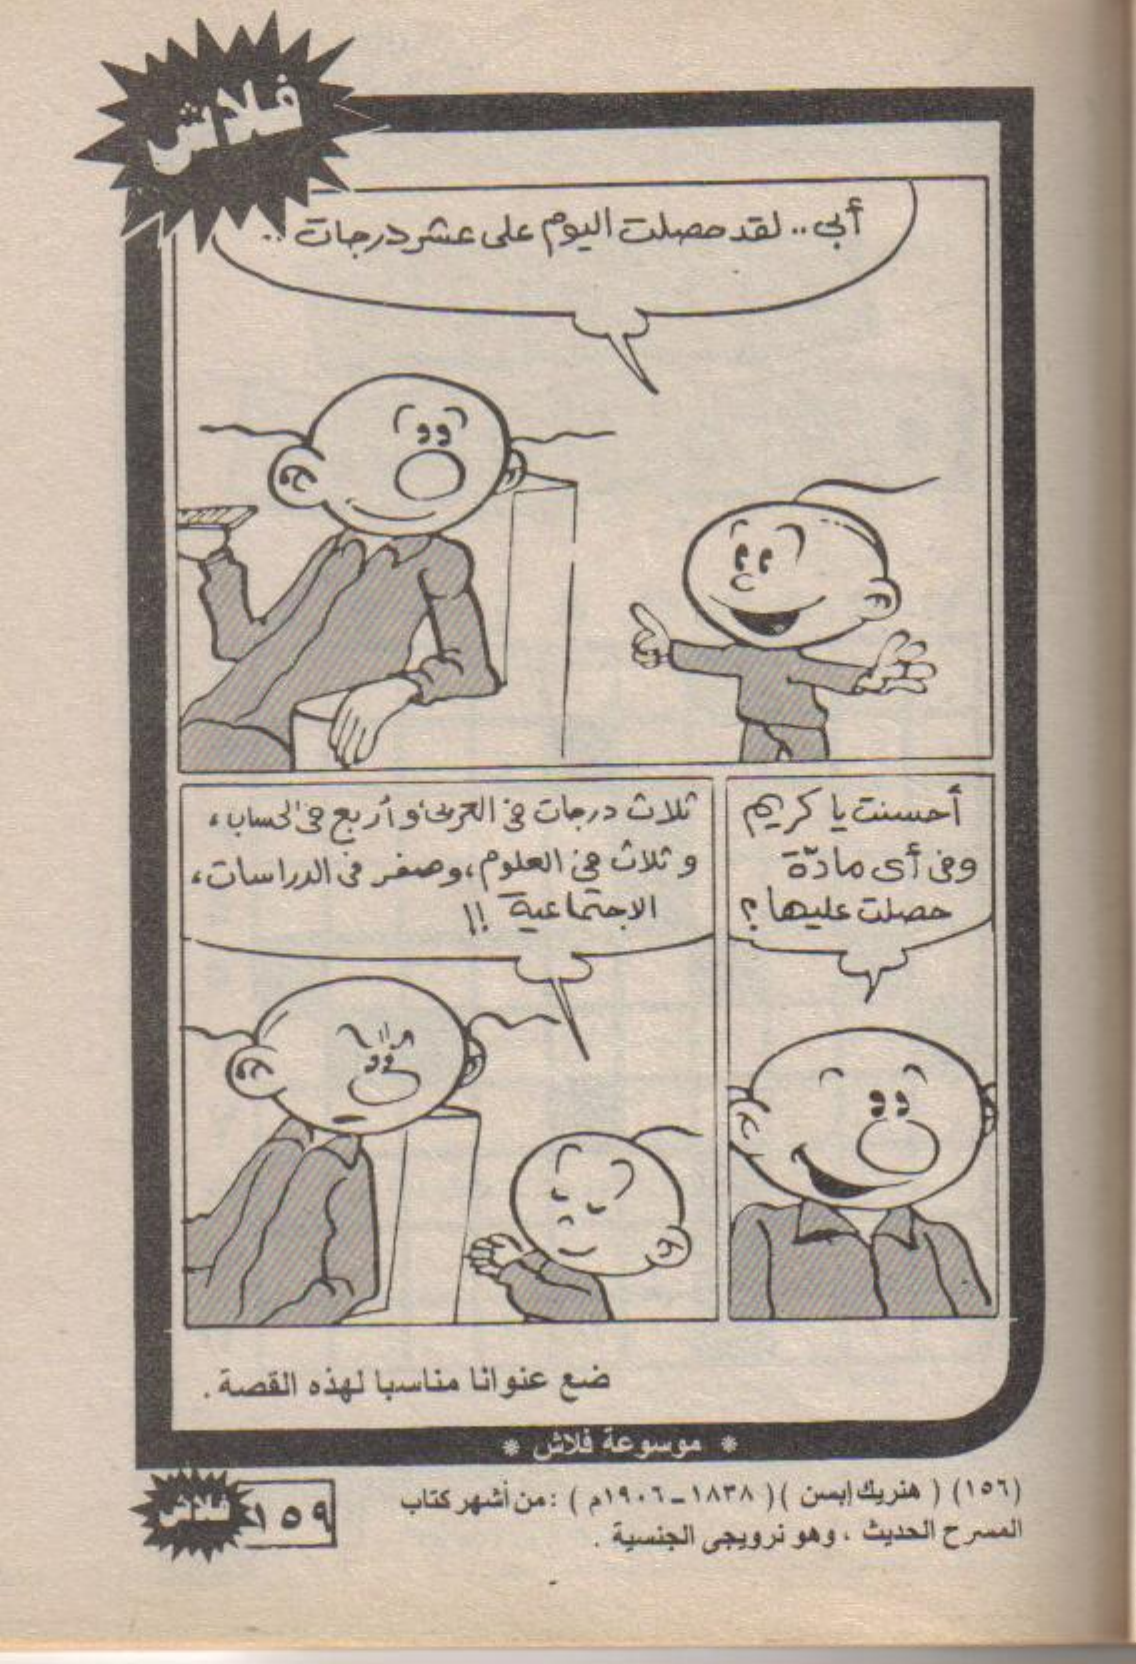 فلاش
أبي.. لقد حصلت اليوم على عشر درجات..
أحسنت يا كريم
وفى أى مادّة
حصلت عليها؟
ثلاث درجات فى العربى، وأربع فى الحساب،
وثلاث فى العلوم، وصفر فى الدراسات،
الاجتماعية!!
ضع عنوانا مناسبا لهذه القصة .
* موسوعة فلاش *
(١٥٦) ( هنريك إبسن )( ١٨٣٨ - ١٩٠٦م ) : من أشهر كتاب
المسرح الحديث ، وهو نرويجى الجنسية .
١٥٩
فلاش